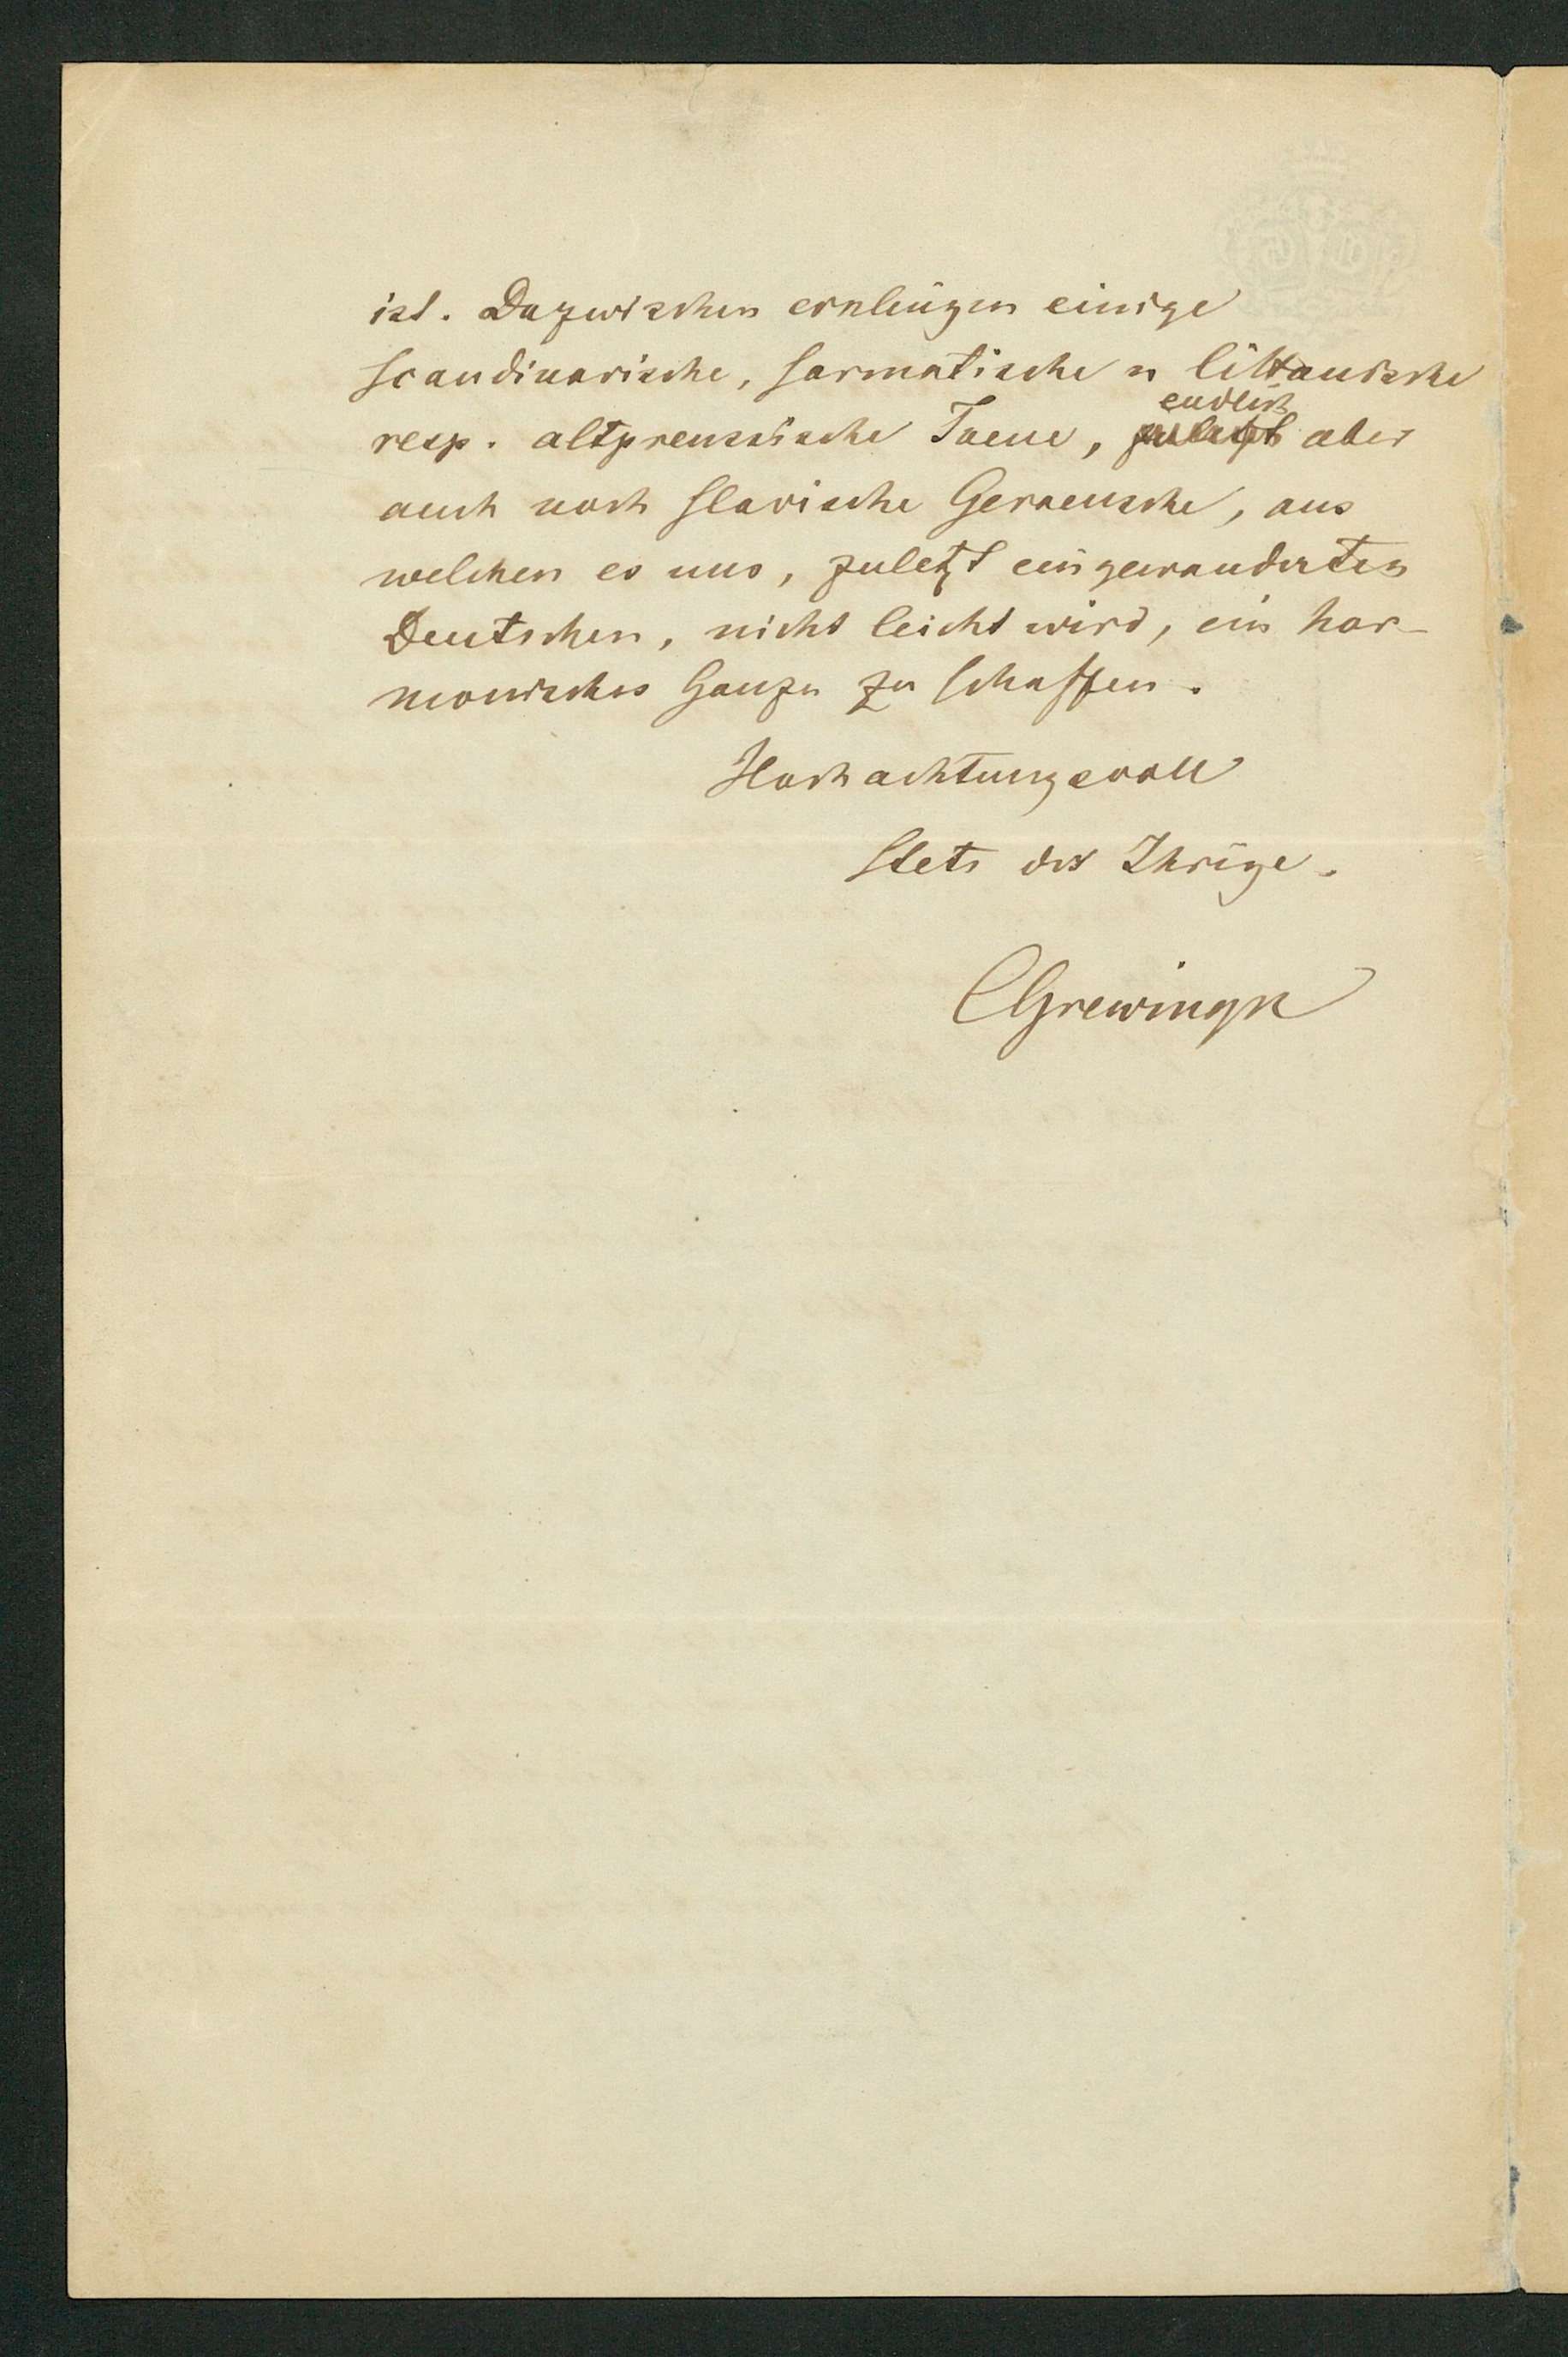 ist. Dazwischen erklingen einige
scandinavische, sarmatische u littauische
resp. altpreussische Toene, endlich aber
auch noch slavische Geraeusche, aus
welchen es uns, zuletzt eingewanderten
Deutschen, nicht leicht wird, ein har-
monisches Ganze zu schaffen.
Hochachtungsvoll
stets der Ihrige.
CGrewingk